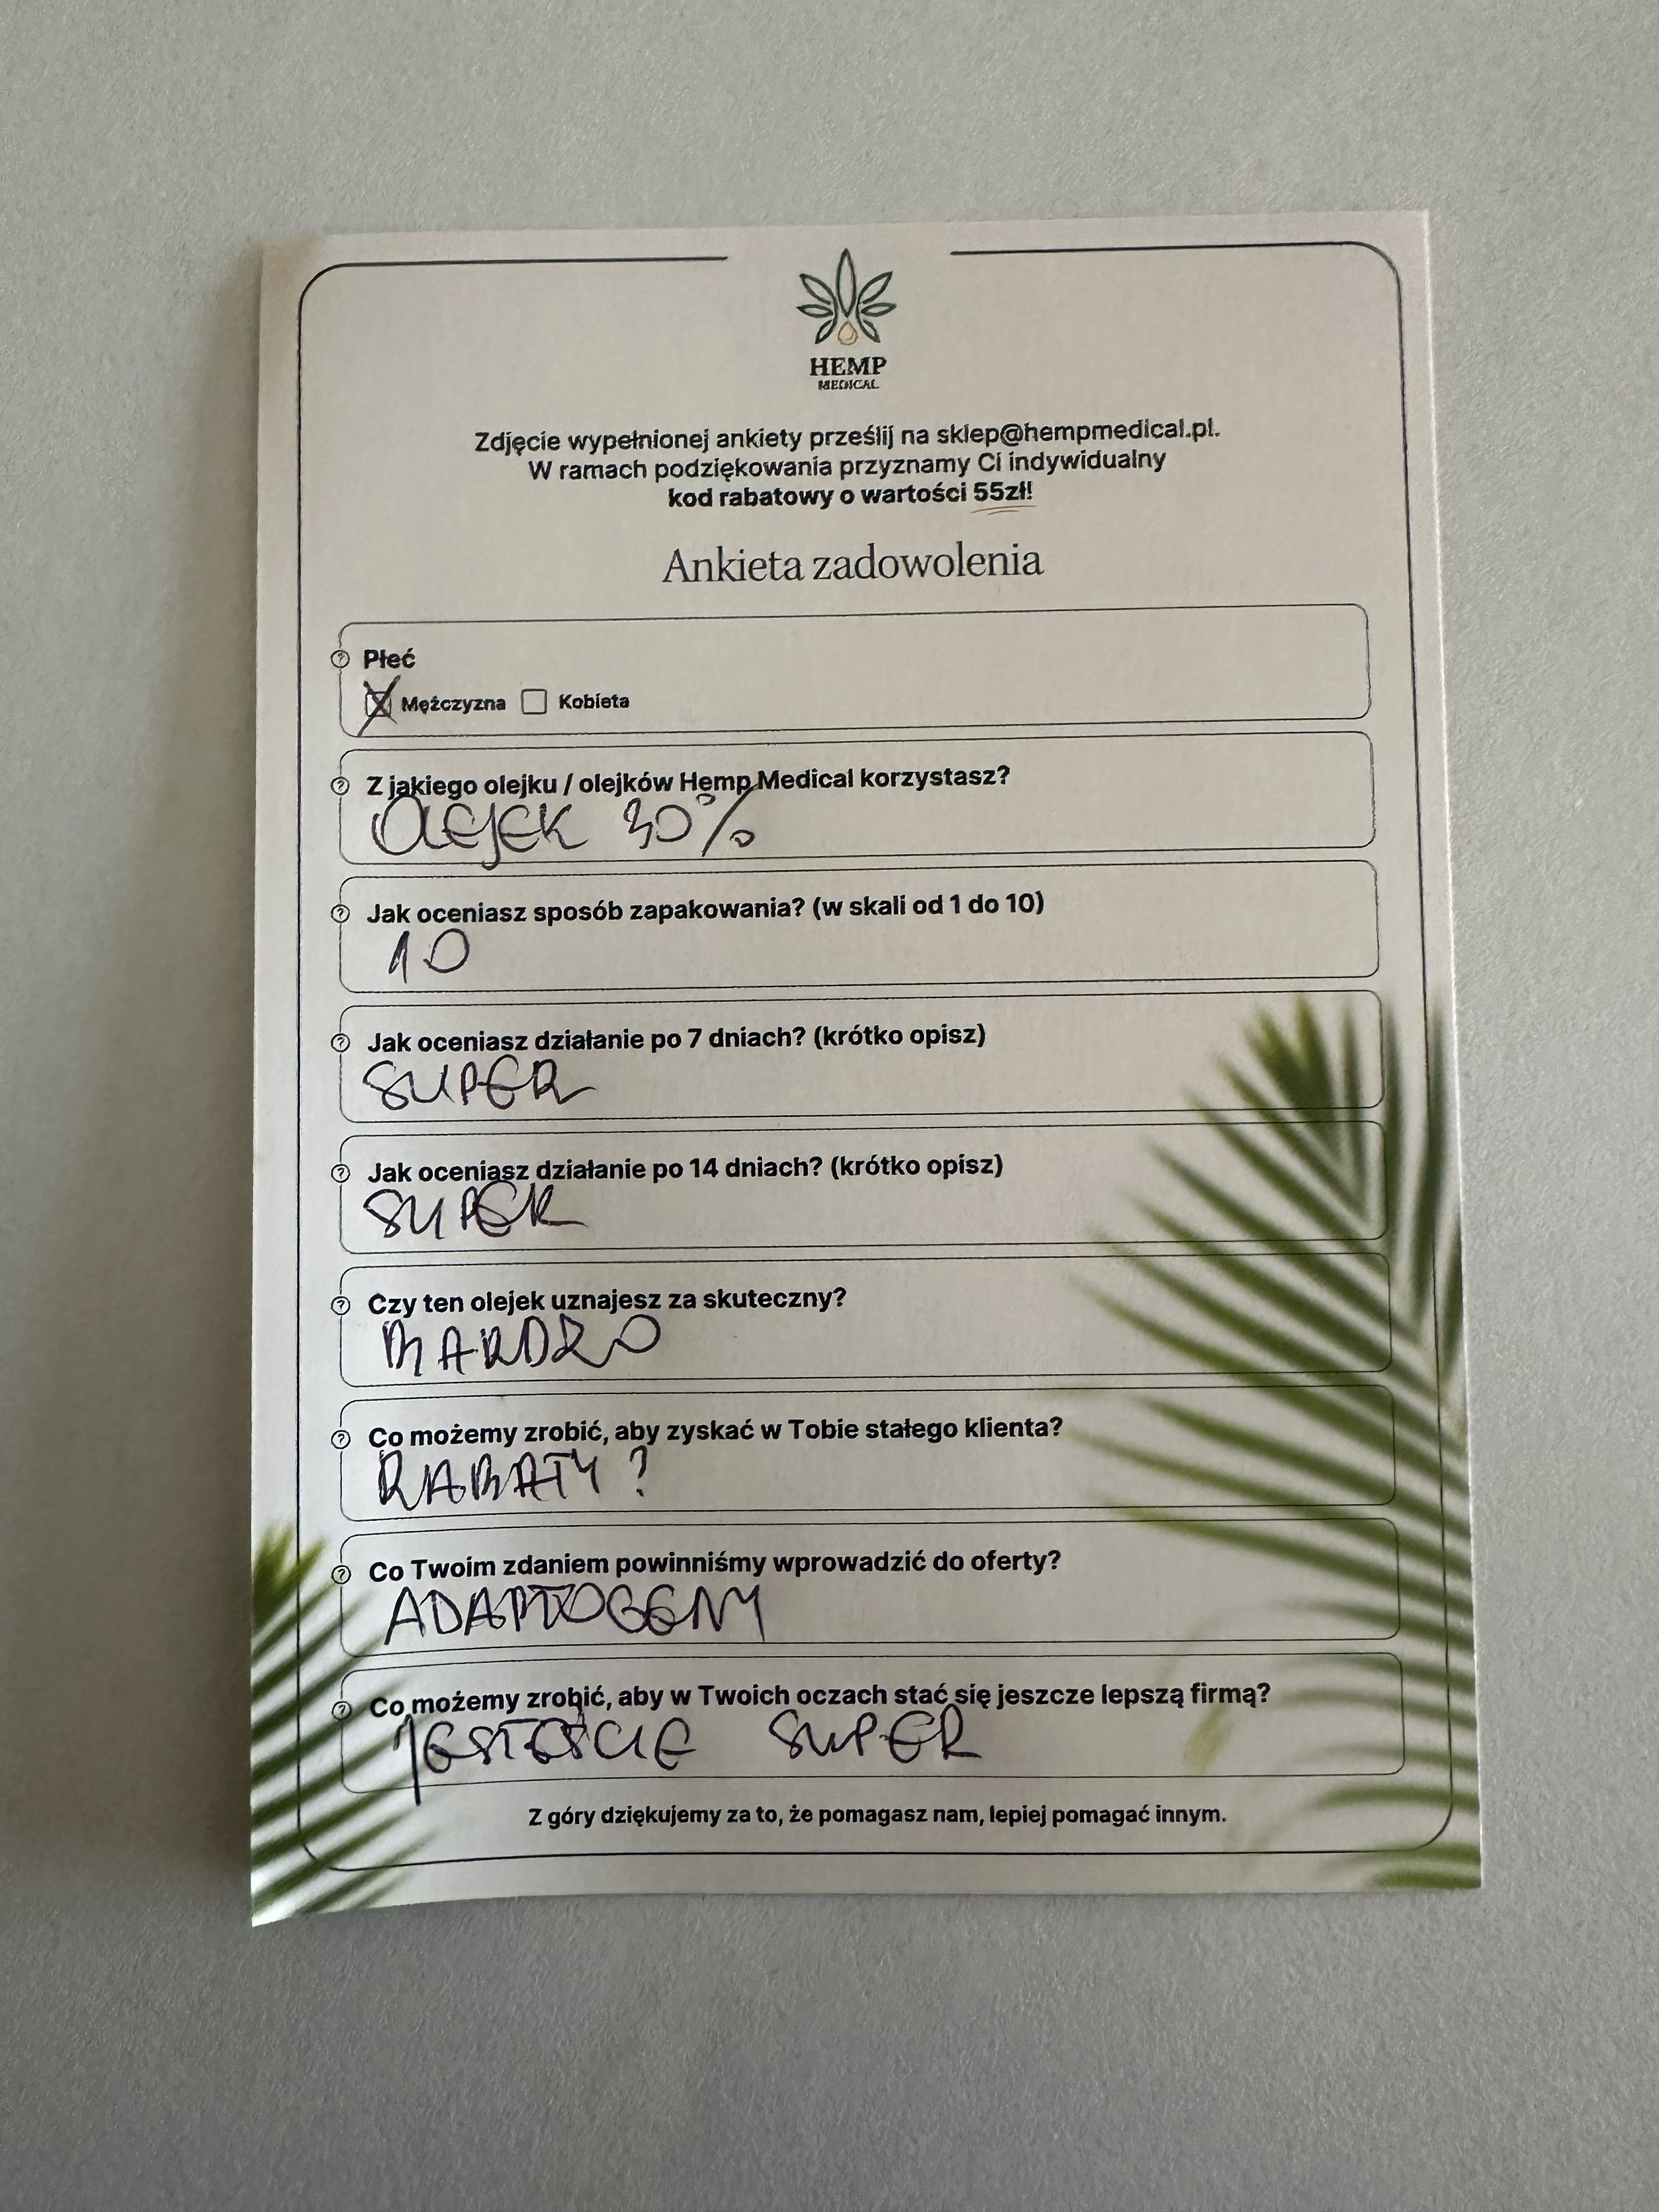 HEMP
MEDICAL
Zdjęcie wypełnionej ankiety prześlij na sklep@hempmedical.pl.
W ramach podziękowania przyznamy Ci indywidualny
kod rabatowy o wartości 55zł!
Ankieta zadowolenia
Płeć
Mężczyzna Kobieta
Z jakiego olejku / olejków Hemp Medical korzystasz?
OLEJEK 30%
Jak oceniasz sposób zapakowania? (w skali od 1 do 10)
10
Jak oceniasz działanie po 7 dniach? (krótko opisz)
SUPER
Jak oceniasz działanie po 14 dniach? (krótko opisz)
SUPER
Czy ten olejek uznajesz za skuteczny?
BARDZO
Co możemy zrobić, aby zyskać w Tobie stałego klienta?
RABATY?
Co Twoim zdaniem powinniśmy wprowadzić do oferty?
ADAPTOGENY
Co możemy zrobić, aby w Twoich oczach stać się jeszcze lepszą firmą?
JESTEŚCIE SUPER
Z góry dziękujemy za to, że pomagasz nam, lepiej pomagać innym.